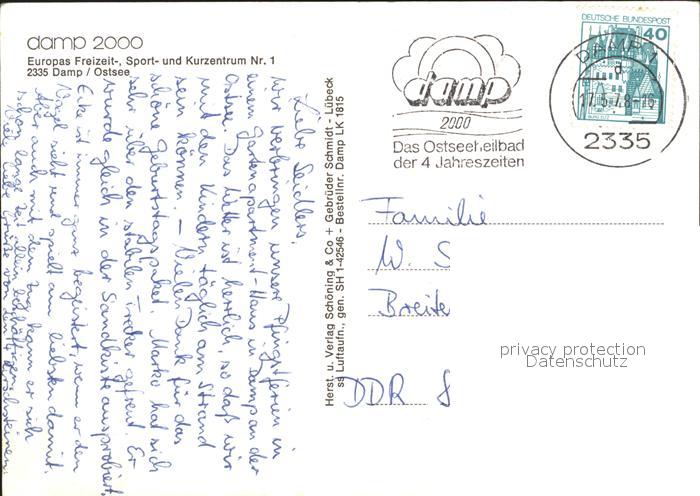 damp 2000
Europas Freizeit-, Sport- und Kurzentrum Nr. 1
2335 Damp / Ostsee
Liebe Seidlers,
wir verbringen unsere Pfingstferien in
einem Gartenapartment-Haus in Damp an der
Ostsee. Das Wetter ist herrlich, so daß wir
mit den Kindern täglich am Strand
sein können. – Vielen Dank für das
schöne Geburtstagspaket. Marko hat sich
sehr über den stabilen Trecker gefreut. Er
wurde gleich in der Sandkiste ausprobiert.
Eike ist immer ganz begeistert, wenn er den
sieht und spielt am liebsten damit.
Aber auch mit dem Zug kann er sich
schon lange Zeit allein beschäftigen.
Viele liebe Grüße von
Herst. u. Verlag Schöning & Co + Gebrüder Schmidt - Lübeck
ss Luftaufn., gen. SH 1-42546 - Bestellnr. Damp LK 1815
damp
2000
Das Ostseeheilbad
der 4 Jahreszeiten
DEUTSCHE BUNDESPOST
40
DAMP 1
d
17.5.78-16
2335
Familie
W. S
Breite
DDR 8
privacy protection
Datenschutz